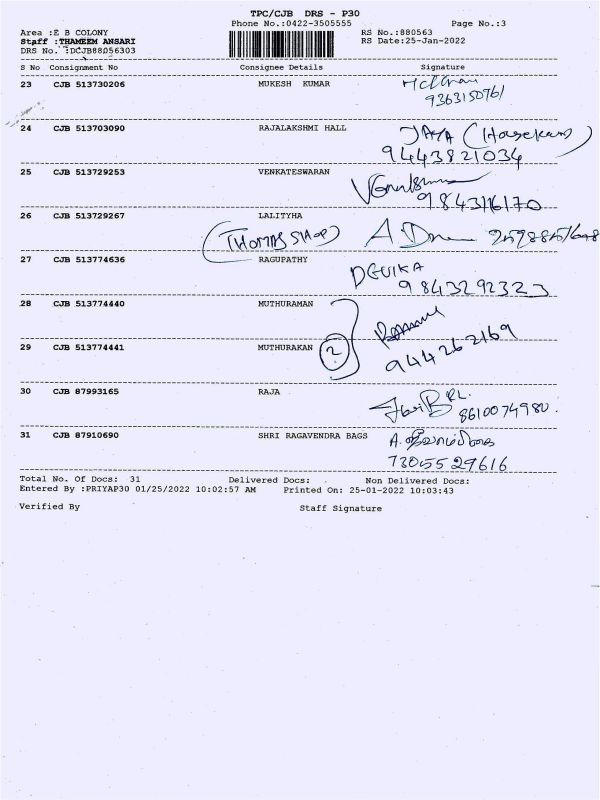 TPC/CJB DRS - P30
Phone No.:0422-3505555 Page No.:3
Area :E B COLONY RS No.:880563
Staff :THAMEEM ANSARI RS Date:25-Jan-2022
DRS No. :DCJB88056303
S No Consignment No Consignee Details Signature
23 CJB 513730206 MUKESH KUMAR
9363150761
24 CJB 513703090 RAJALAKSHMI HALL JAYA
9443821034
25 CJB 513729253 VENKATESWARAN
9843116170
26 CJB 513729267 LALITYHA
(THOMAS SHOP)
27 CJB 513774636 RAGUPATHY DEVIKA
9843292323
28 CJB 513774440 MUTHURAMAN
29 CJB 513774441 MUTHURAKAN 2 944262169
30 CJB 87993165 RAJA
8610074980.
31 CJB 87910690 SHRI RAGAVENDRA BAGS A.
7305529616
Total No. Of Docs: 31 Delivered Docs: Non Delivered Docs:
Entered By :PRIYAP30 01/25/2022 10:02:57 AM Printed On: 25-01-2022 10:03:43
Verified By Staff Signature